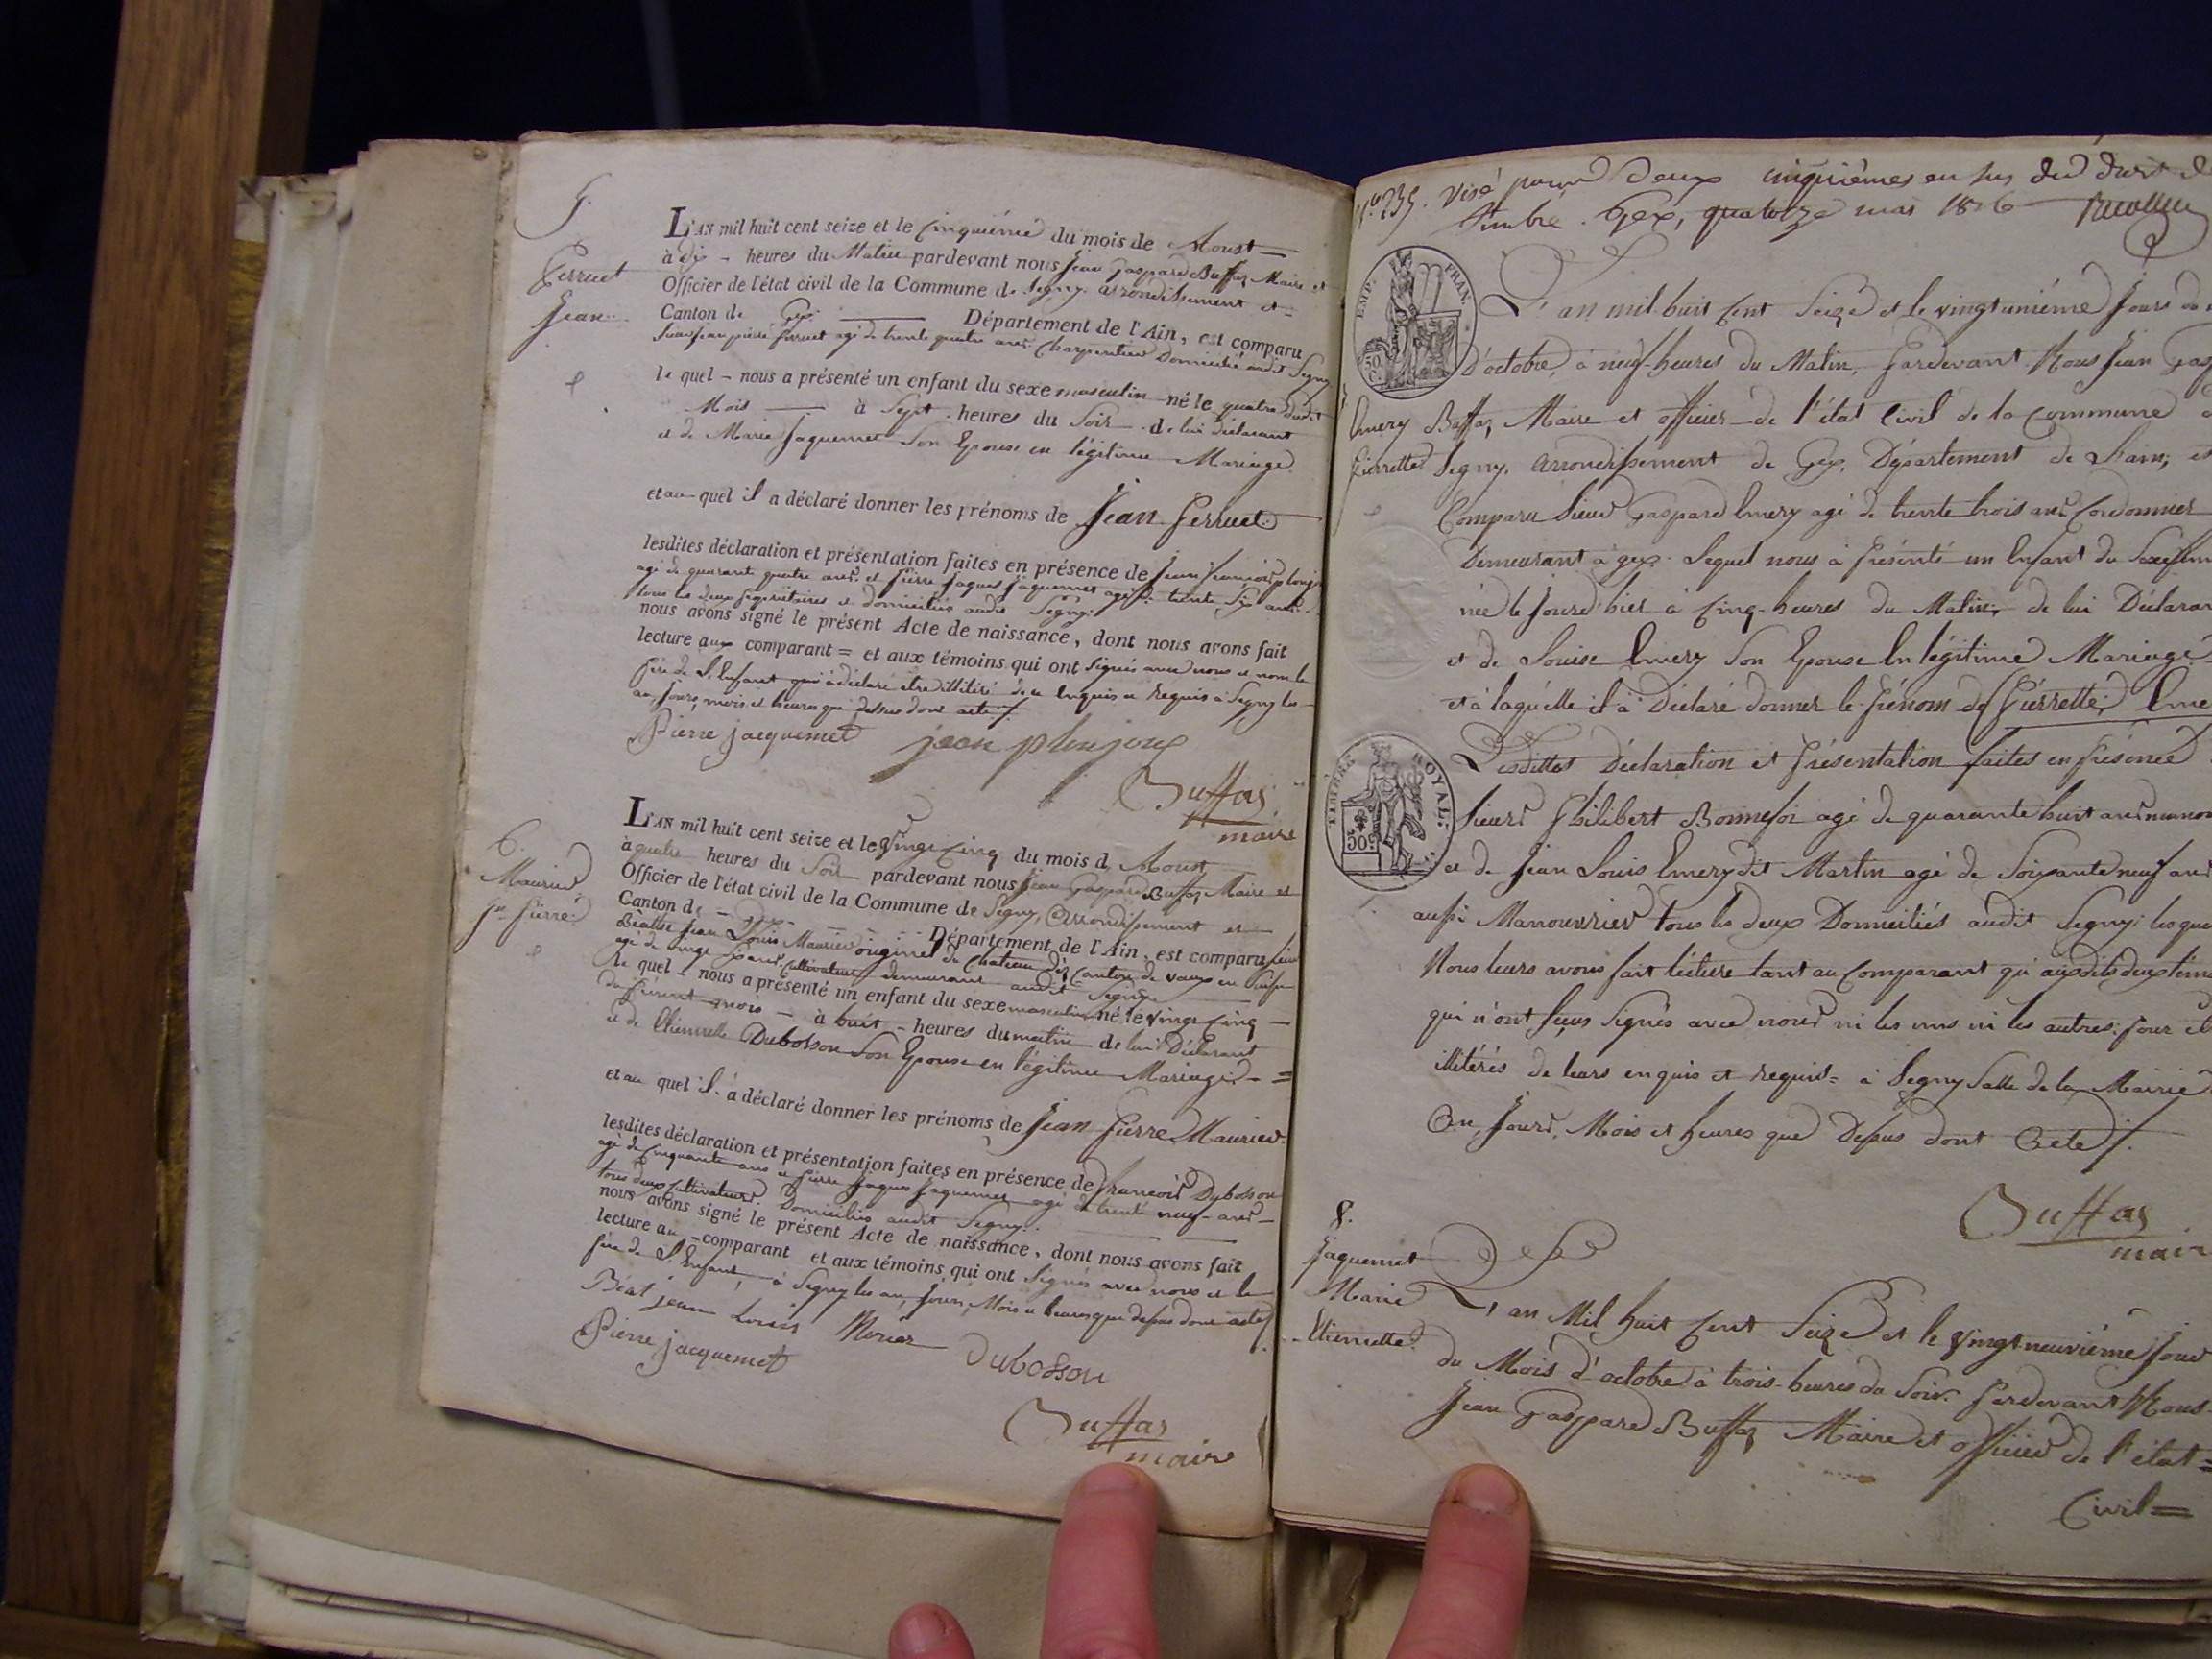 5.
Perruet
Jean
L'AN mil huit cent seize et le cinquième du mois de Aoust
à dix - heures du Matin pardevant nous Jean Gaspard Buffaz Maire et
Officier de l'état civil de la Commune de Segny arrondissement et
Canton de Gex Département de l'Ain, est comparu
Sieur Jean pierre Perruet agé de trente quatre ans Charpentier Domicilié audit Segny
le quel - nous a présenté un enfant du sexe masculin né le quatre dudit
Mois à Sept heures du Soir de lui déclarant
et de Marie Jaquemet Son Epouse en légitime Mariage
et au quel il a déclaré donner les prénoms de Jean Perruet
lesdites déclaration et présentation faites en présence de Jean François plonjoux
agé de quarante quatre ans et Pierre Jaques Jaquemet agé de trente six ans
tous les deux propriétaires et domiciliés audit Segny
nous avons signé le présent Acte de naissance, dont nous avons fait
lecture aux comparant = et aux témoins qui ont signés avec nous et non le
père de l'Enfant qui à déclaré être illitéré de ce enquis et requis à Segny les
an, jours, mois et heures que dessus dont acte
Pierre jacquemet jean plonjoux
Buffaz
maire
6.
Maurier
Jn Pierre
L'AN mil huit cent seize et le vingt cinq du mois d Aoust
à quatre heures du Soir pardevant nous Jean Gaspard Buffaz Maire et
Officier de l'état civil de la Commune de Segny, Arrondissement et
Canton de - Gex - Département de l'Ain, est comparu Sieur
Jean Louis Maurier originel de Chateau Canton de vaux en Suisse
agé de ans Cultivateur demeurant audit Segny
le quel - nous a présenté un enfant du sexe masculin né le vingt cinq
du présent mois - à huit - heures du matin de lui Déclarant
et de Etiennette Dubosson Son Epouse en légitime Mariage - =
et au quel il a déclaré donner les prénoms de Jean Pierre Maurier
lesdites déclaration et présentation faites en présence de François Dubosson
agé de cinquante ans et Pierre Jaques Jaquemet agé de trente neuf ans
tous deux Cultivateurs Domiciliés audit Segny
nous avons signé le présent Acte de naissance, dont nous avons fait
lecture au - comparant et aux témoins qui ont Signés avec nous et le
père de l'Enfant, à Segny les an, jours, Mois et heures que dessus dont acte
Béat jean Louis Morier
Pierre jacquemet Dubosson
Buffaz
maire
N° 235. visé pour deux cinquièmes en sus du droit de
timbre. Gex, quatorze mai 1816
EMP. FRAN.
50 C.
L'an mil huit Cent Seize et le vingtunième Jours du
D'octobre, à neuf heures du Matin, Pardevant Nous Jean Gasp
Emery
Pierrette
Buffaz, Maire et officier de l'état Civil de la Commune d
Segny, arrondissement de Gex, Département de L'ain, est
Comparu Sieur Gaspard Emery agé de trente trois ans Cordonnier
Demeurant à gex. Lequel nous à présenté un Enfant du Sexe fém
née le Jourd'hier à Cinq heures du Matin, de lui Déclaran
et de Louise Emery Son Epouse En légitime Mariage
et à laquelle il à Déclaré donner le prénom de Pierrette Eme
TIMBRE ROYAL
50 C.
Lesdittes Déclaration et Présentation faites en présence
Sieurs Philibert Bonnefoi agé de quarante huit ans
et de Jean Louis Emery dit Martin agé de Soixante neuf ans
aussi Manouvrier tous les deux Domiciliés audit Segny; les que
Nous leurs avons fait lécture tant au Comparant qu'auxdits deux témo
qui n'ont sçus Signés avec nous ni les uns ni les autres; pour être
illitérés de leurs enquis et requis = à Segny Salle de la Mairie
An, Jours, Mois et heures que Dessus dont Acte
Buffaz
mair
8.
Jaquemet
Marie
Etiennette
L'an Mil huit Cent Seize et le vingt neuvième Jour
du Mois d'octobre à trois heures du Soir Pardevant Nous
Jean Gaspard Buffaz Maire et officier de l'état =
Civil =